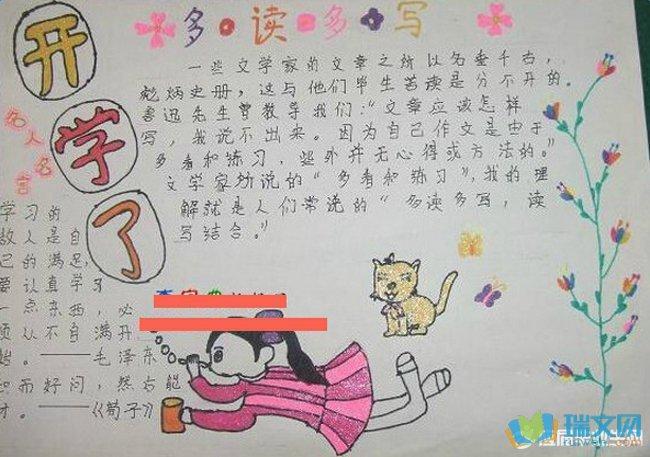 开学了
多读多写
一些文学家的文章之所以名垂千古，
彪炳史册，这与他们毕生苦读是分不开的。
鲁迅先生曾教导我们："文章应该怎样
写，我说不出来。因为自己作文是由于
多看和练习，此外并无心得或方法的。"
文学家所说的"多看和练习"，我的理
解就是人们常说的"多读多写，读
写结合。"
名人名言
学习的
敌人是自
己的满足，
要认真学习
一点东西，必
须从不自满开
始。——毛泽东
知而好问，然后能
才。——《荀子》
瑞文网